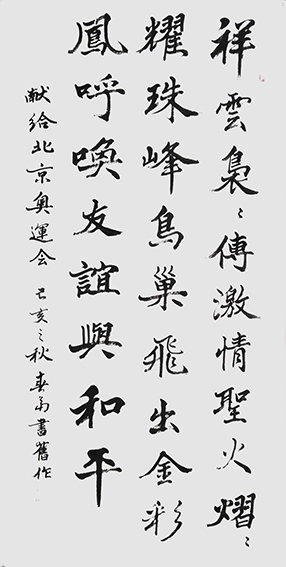 祥雲裊〻傳激情聖火熠〻
耀珠峰鳥巢飛出金彩
鳳呼喚友誼與和平
献给北京奥運会 己亥之秋 春 書舊作